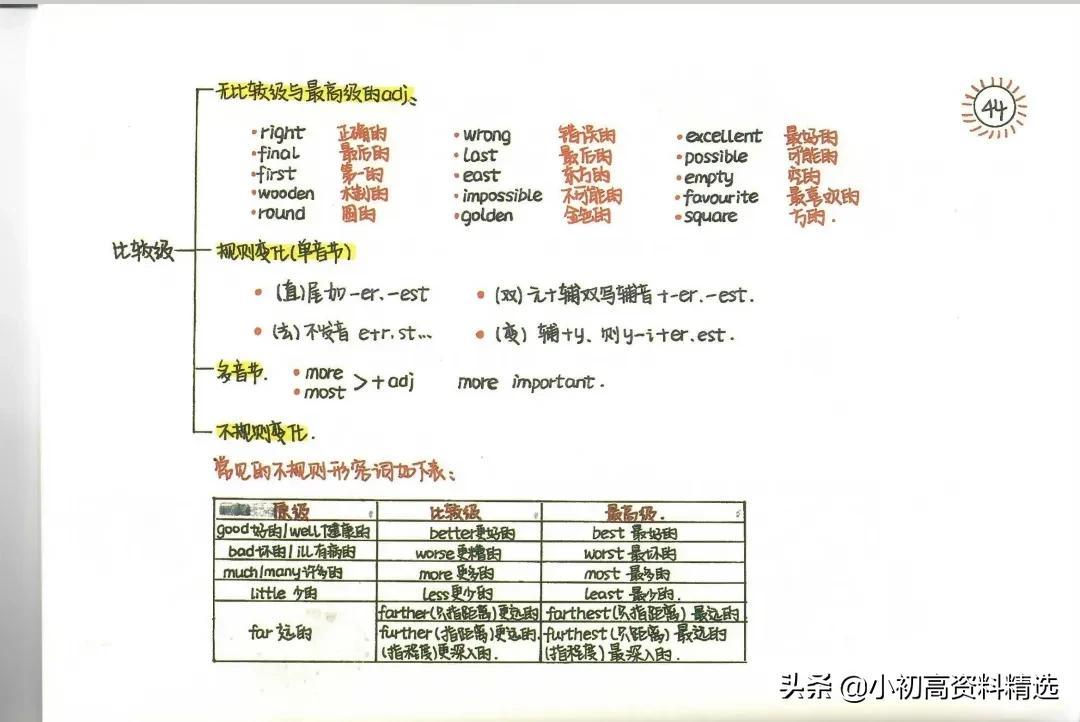 44
无比较级与最高级的adj、
·right 正确的 ·wrong 错误的 ·excellent 最好的
·final 最后的 ·last 最后的 ·possible 可能的
·first 第一的 ·east 东方的 ·empty 空的
·wooden 木制的 ·impossible 不可能的 ·favourite 最喜欢的
·round 圆的 ·golden 金色的 ·square 方的.
比较级
规则变化(单音节)
·(直)尾加-er、-est ·(双)元+辅双写辅音+-er.-est.
·(去)不发音e+r.st... ·(变)辅+y、则y-i+er.est.
多音节.
·more
·most
>+adj more important.
不规则变化.
常见的不规则形容词如下表:
原级 比较级 最高级.
good好的/well健康的 better更好的 best 最好的
bad坏的/ill有病的 worse更糟的 worst 最坏的
much/many许多的 more更多的 most 最多的
little 少的 less更少的 least 最少的.
far 远的
farther(只指距离)更远的 farthest(只指距离) 最远的
further(指距离)更远的. furthest(只距离) 最远的
(指程度)更深入的. (指程度)最深入的.
头条 @小初高资料精选